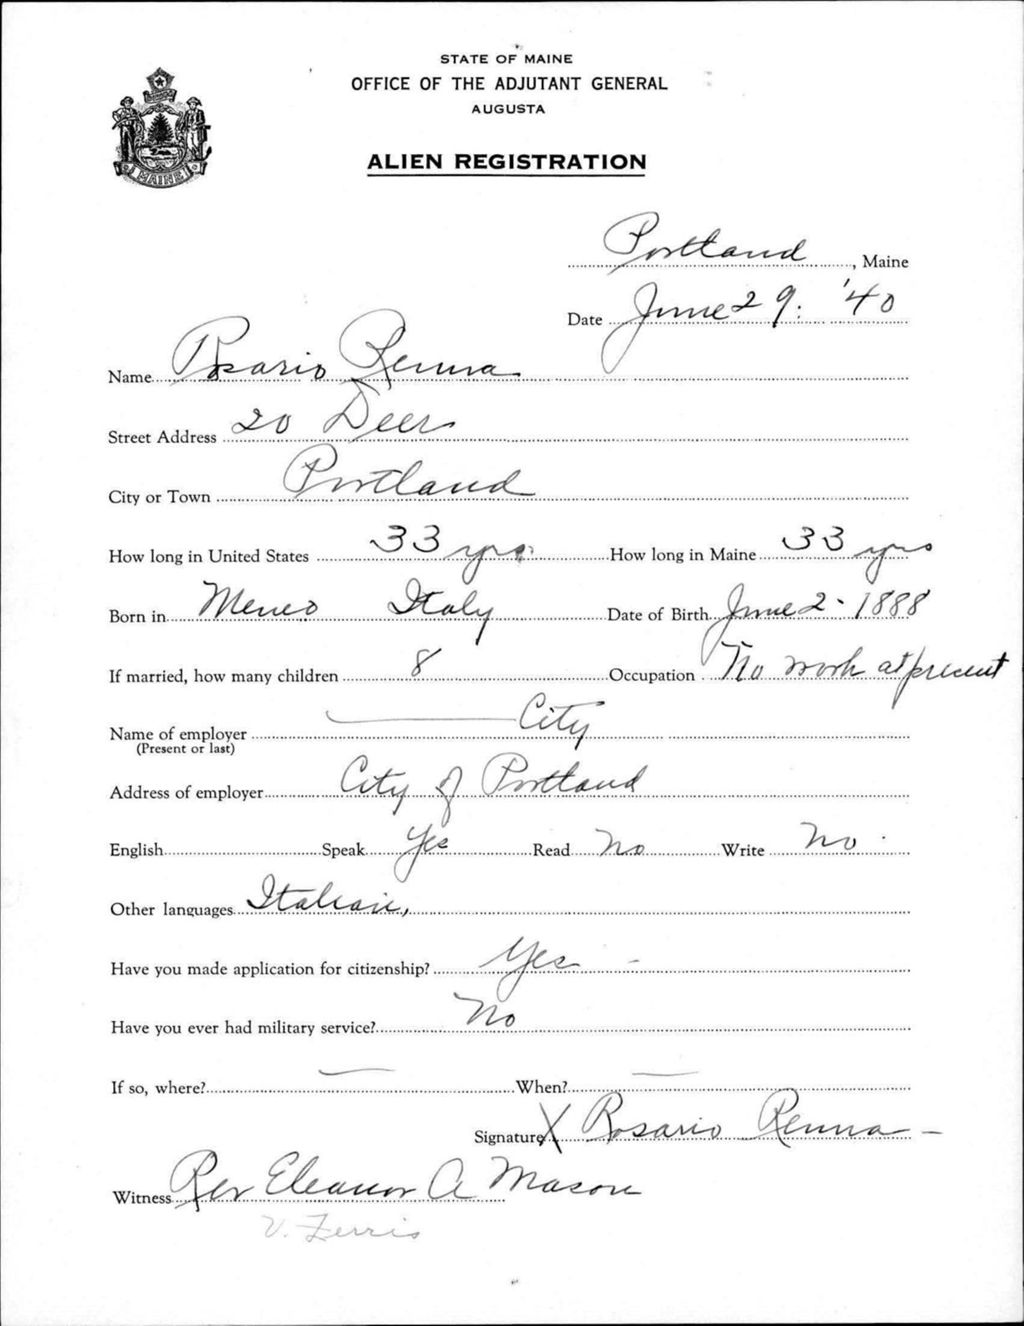 STATE OF MAINE
OFFICE OF THE ADJUTANT GENERAL
AUGUSTA
ALIEN REGISTRATION
MAINE
Portland, Maine
Date June 29. '40
Name Rosario Renna
Street Address 20 Deer
City or Town Portland
How long in United States 33 yrs. How long in Maine 33 yrs
Born in Italy Date of Birth June 2 - 1888
If married, how many children 8 Occupation No work at present
Name of employer City
(Present or last)
Address of employer City of Portland
English Speak Yes Read No Write No.
Other languages Italian,
Have you made application for citizenship? Yes -
Have you ever had military service? No
If so, where? — When? —
Signature X Rosario Renna -
Witness Eleanor A Mason
V. Ferris